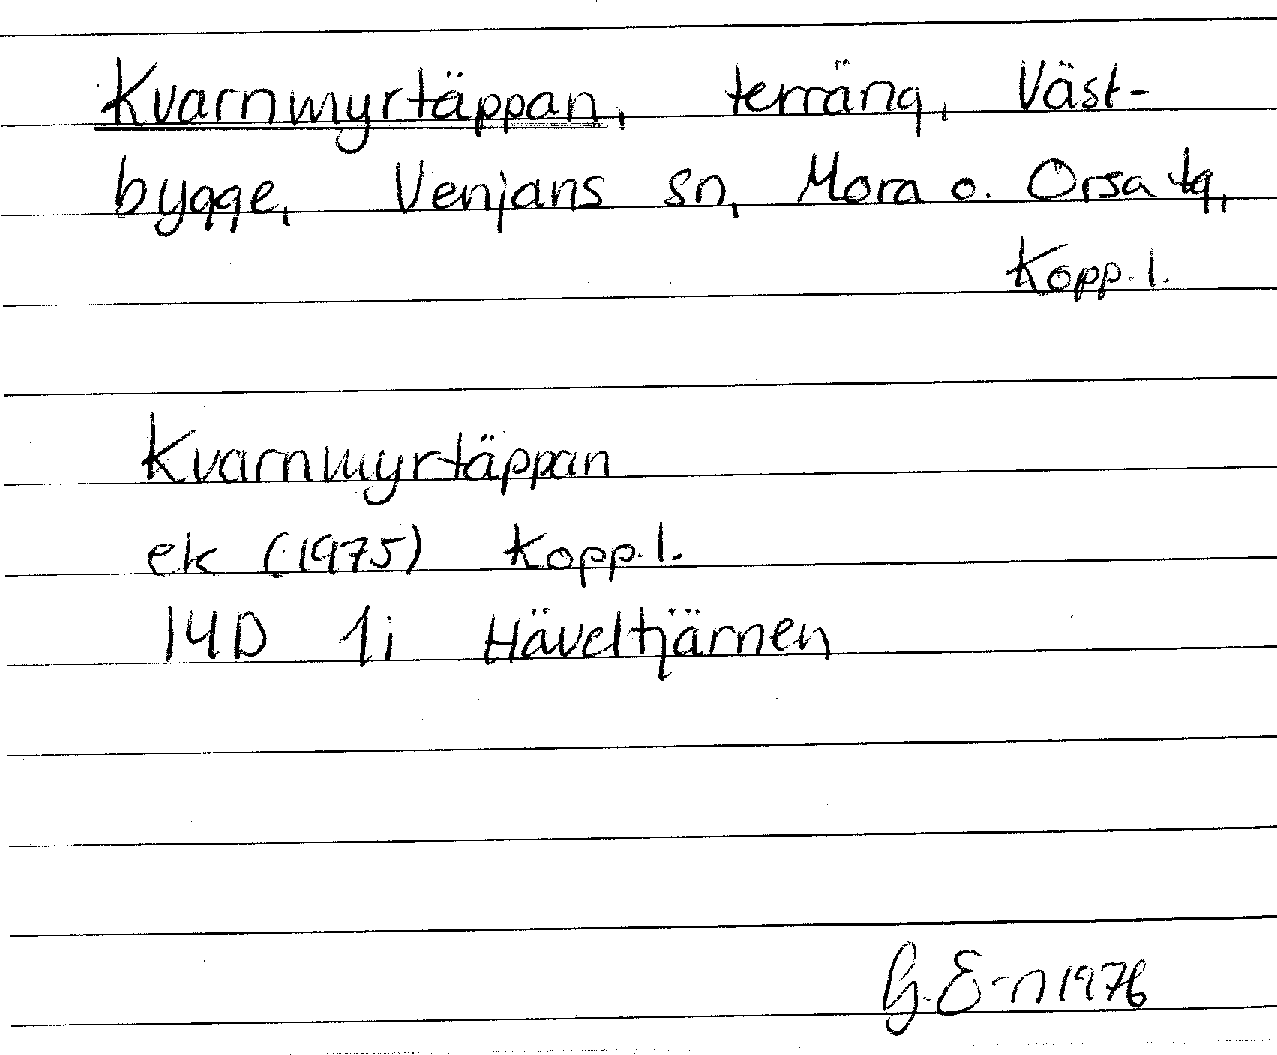 Kvarnmyrtäppan, terräng, Väst-
bygge, Venjans sn, Mora o. Orsa tg,
Kopp. l.
Kvarnmyrtäppan
ek (1975) Kopp. l.
14D 1i Häveltjärnen
G. E-n 1976